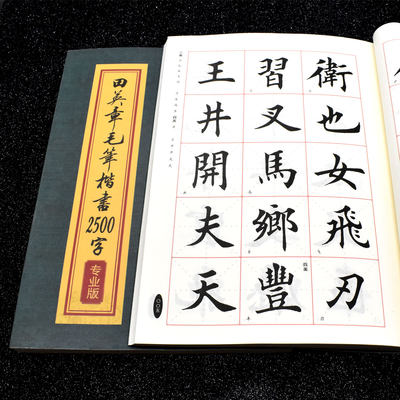 田英章毛筆楷書2500字
专业版
衛也女飛刃
習叉馬鄉豐
王井開夫天
〇〇五